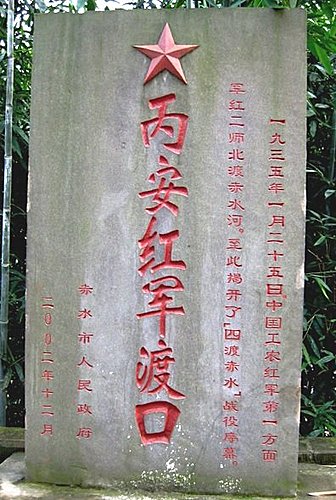 一九三五年一月二十五日,中国工农红军第一方面
军红二师北渡赤水河。至此揭开了「四渡赤水」战役序幕。
丙安红军渡口
赤水市人民政府
二00二年十二月